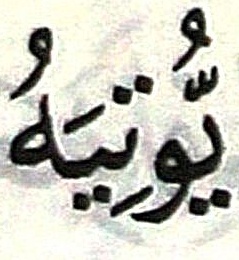 يُّوتِيَهُ